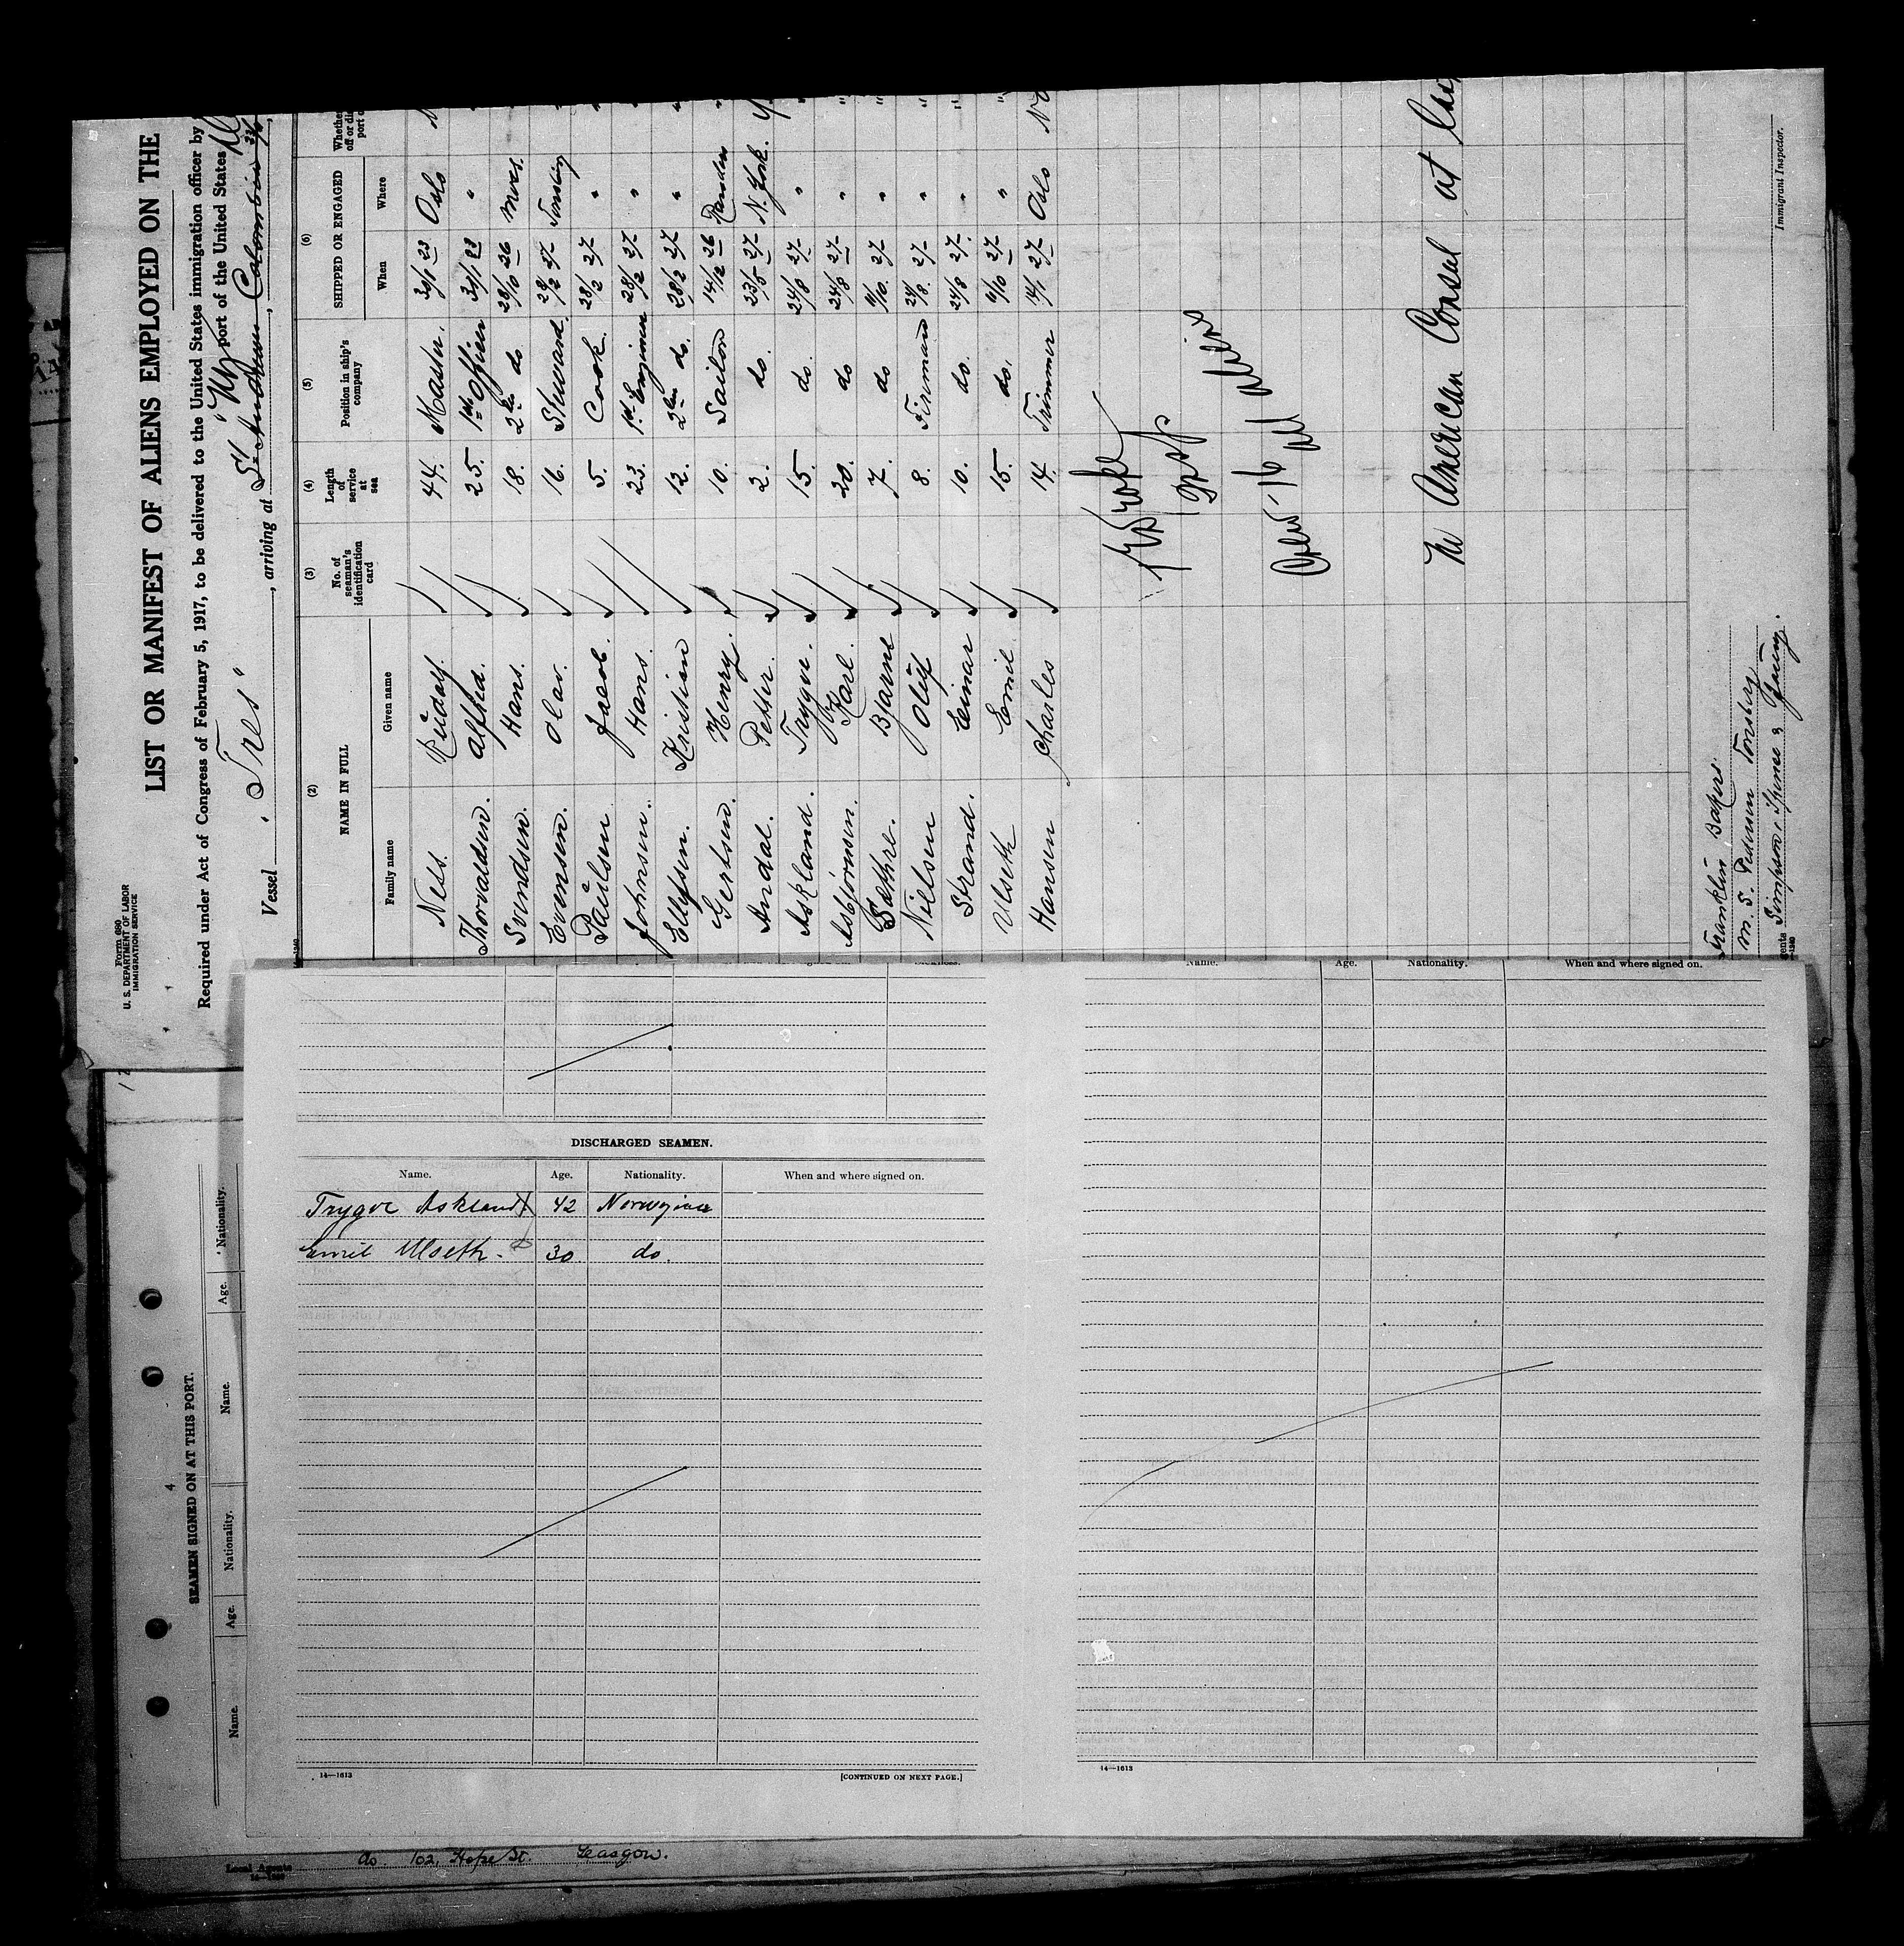 Form 680
U. S. DEPARTMENT OF LABOR
IMMIGRATION SERVICE
LIST OR MANIFEST OF ALIENS EMPLOYED ON THE
Required under Act of Congress of February 5, 1917, to be delivered to the United States immigration officer by
port of the United States
Vessel "Tres", arriving at St. Andrew Colombia
(2) (3) (4) (5) (6)
NAME IN FULL No. of seaman's identification card Length of service at sea Position in ship's company SHIPPED OR ENGAGED Whether
Family name Given name When Where
Ness. Rudolf. 44. Master. 30/1 23 Oslo
Thorvaldsen. Alfred. 25. 1st Officer 30/1 23 "
Svendsen. Hans. 18. 2en do 28/10 26 Moss.
Evensen. Olav. 16. Steward. 28/2 27 Tonsberg
Paulsen Jacob. 5. Cook. 28/2 27 "
Johnsen. Hans. 23. 1st Engineer 28/2 27 "
Ellefsen. Kristian 12. 2en do. 28/2 27 "
Gertsen. Henry. 10. Sailor 14/12 26
Andal. Petter. 2. do. 23/5 27 N. York.
Askland. Trygve. 15. do. 24/8 27 "
Asbjørnsen. Karl. 20. do 24/8 27 "
Sæthre. Bjarne 7. do 11/10. 27 "
Nielsen Oluf 8. Fireman 24/8. 27 "
Strand. Einar 10. do. 24/8 27. "
Ulseth Emil 15. do. 11/10 27 "
Hansen Charles 14. Trimmer 14/1 27 Oslo
Crew 16 all aliens
No American Consul at last
Franklin Bakers.
M. S. Pedersen Tonsberg
Simpson, Spence & Young.
Immigrant Inspector.
Name. Age. Nationality. When and where signed on.
DISCHARGED SEAMEN.
Name. Age. Nationality. When and where signed on.
Trygve Askland 42 Norwegian
Emil Ulseth. 30 do.
14—1613
[CONTINUED ON NEXT PAGE.]
14—1613
4
SEAMEN SIGNED ON AT THIS PORT.
Name. Age. Nationality. Name. Age. Nationality.
Local Agents do. 102, Hope St. Glasgow.